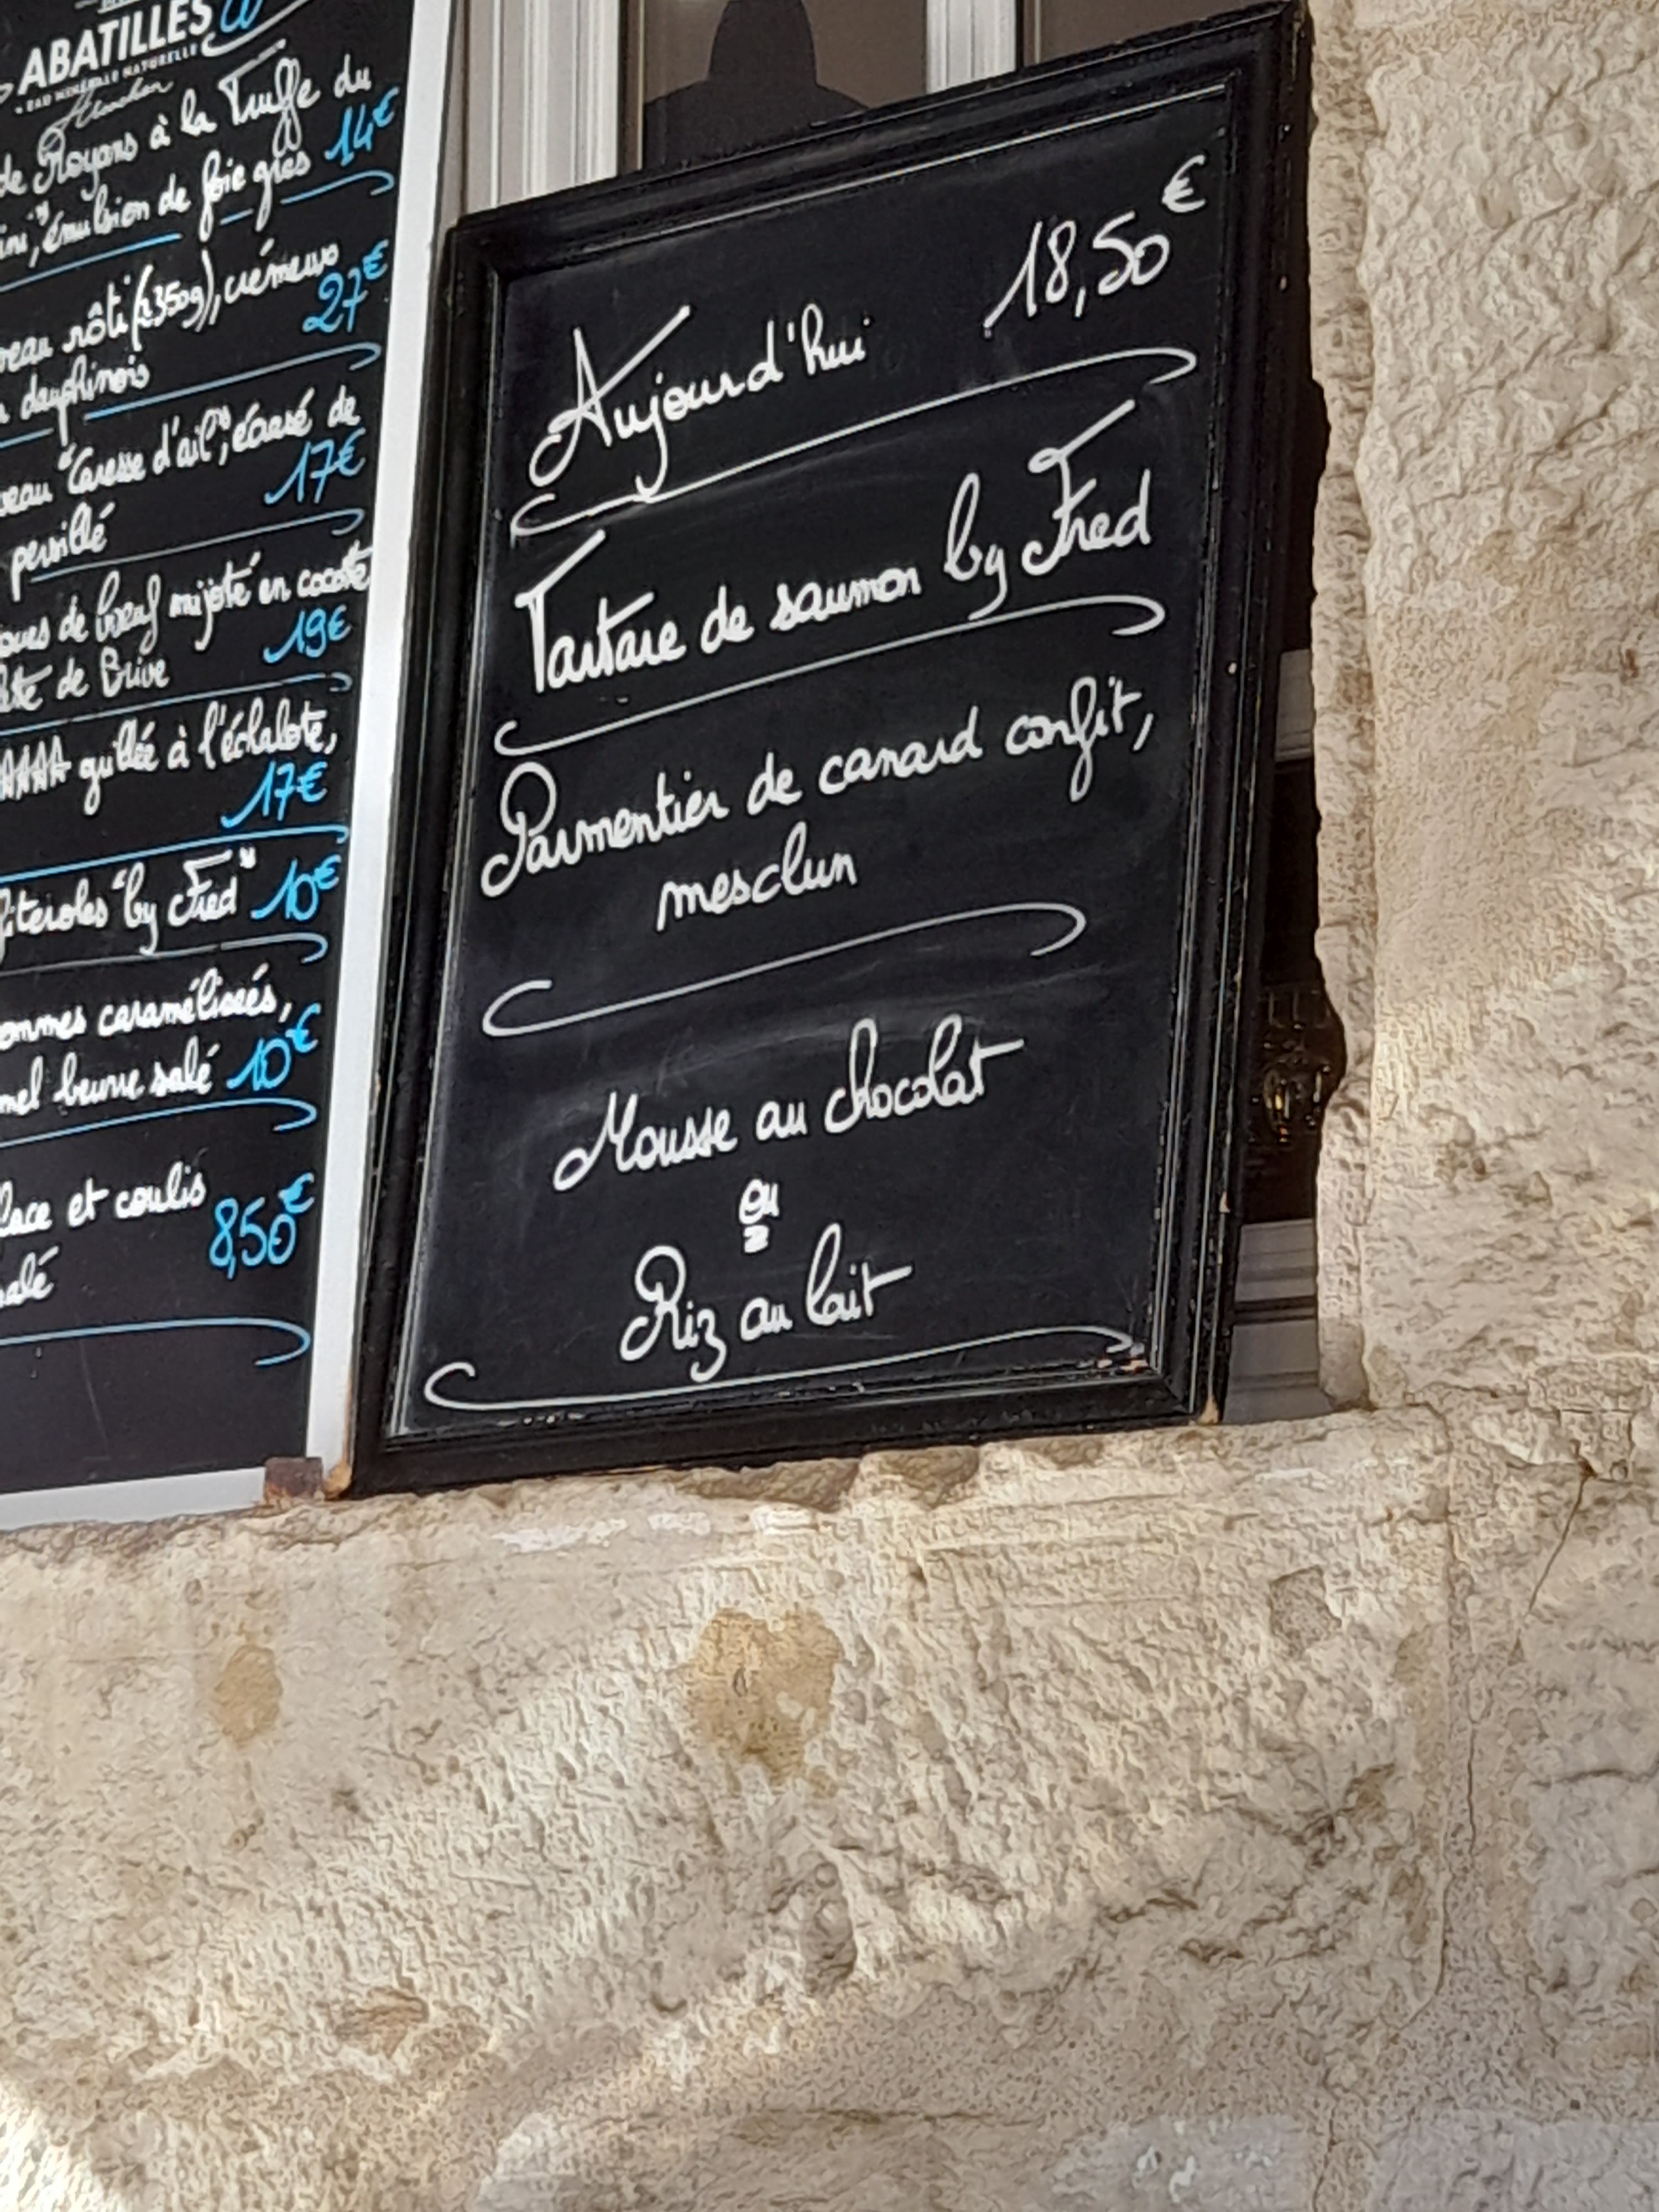 ABATILLES
EAU MINÉRALE NATURELLE
Arcachon
de Royans à la Truffe du
émulsion de foie gras 14€
rôti (±350g), crémeux
27€
dauphinois
"Caresse d'ail", écrasé de
17€
persillé
de boeuf mijoté en cocotte
19€
de Brive
AAAA grillée à l'échalote,
17€
"by Fred" 10€
caramélisées,
beurre salé 10€
et coulis
8,50€
Aujourd'hui 18,50€
Tartare de saumon by Fred
Parmentier de canard confit,
mesclun
Mousse au chocolat
ou
Riz au lait